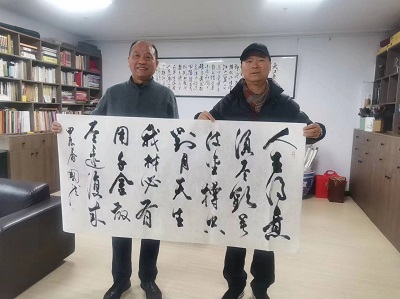 人生得意
须尽歡莫
使金樽空
对月天生
我材必有
用千金散
尽還復来